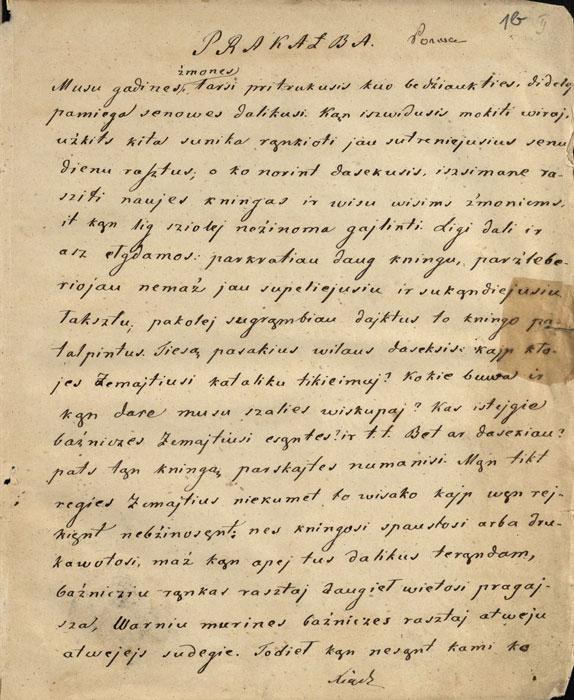 1b
PRAKAŁBA.
żmones
Musu gadines, tarsi pritrukusis kuo bedźiaukties, didely
pamiega senowes dalikus. Kąn iszwidusis mokiti wiraj,
użkits kita sunika rąnkioti jau sutreniejusius senu
dienu rasztus; o ko norint dasekusis, iszsimane ra-
sziti naujes kningas ir wisu wisims żmoniems,
it kąn lig sziolej nożinoma gajlinti. Ligi dali ir
asz ełgdamos: parkratiau daug kningu, parżlebe-
riojau nemaż jau supeliejusiu ir sukąndiejusiu
łaksztu, pakolej sugrąmbiau dajktus to kningo pa-
talpintus. Tiesą pasakius wilaus daseksis: kajp kto-
jes Żemajtiusi kataliku tikieimaj? Kokie buwa ir
kąn dare musu szalies wiskupaj? Kas istejgie
bażniczes Żemajtiusi esąntes? ir t.t. Bet ar dasekiau?
pats tąn kningą parskajtes numanisi. Mąn tikt
regies Żemajtius niekumet to wisako kajp węn rej-
kięnt nebżinosęnt; nes kningosi spaustosi arba dru-
kawotosi, maż kąn apej tus dalikus terąndam,
bażnicziu rąnkas rasztaj daugieł wietosi pragaj-
sza, Warniu murines bażniczes rasztaj atweju
atwejejs sudegie. Todieł kąn nesąnt kami ko